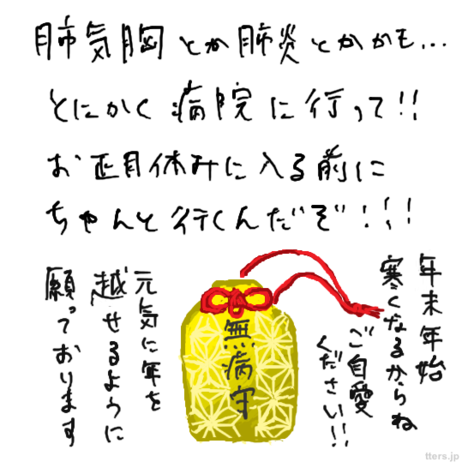 肺気胸とか肺炎とかかも...
とにかく病院に行って!!
お正月休みに入る前に
ちゃんと行くんだぞ!!!
年末年始
寒くなるからね
ご自愛
ください!!
無病守
元気に年を
越せるように
願っております
tters.jp